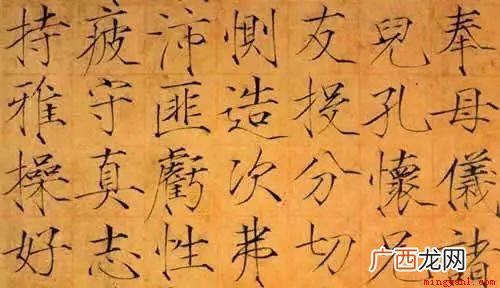 奉母儀諸
兒孔懷兄
友投分切
惻造次弗
沛匪虧性
疲守真志
持雅操好
广西龙网